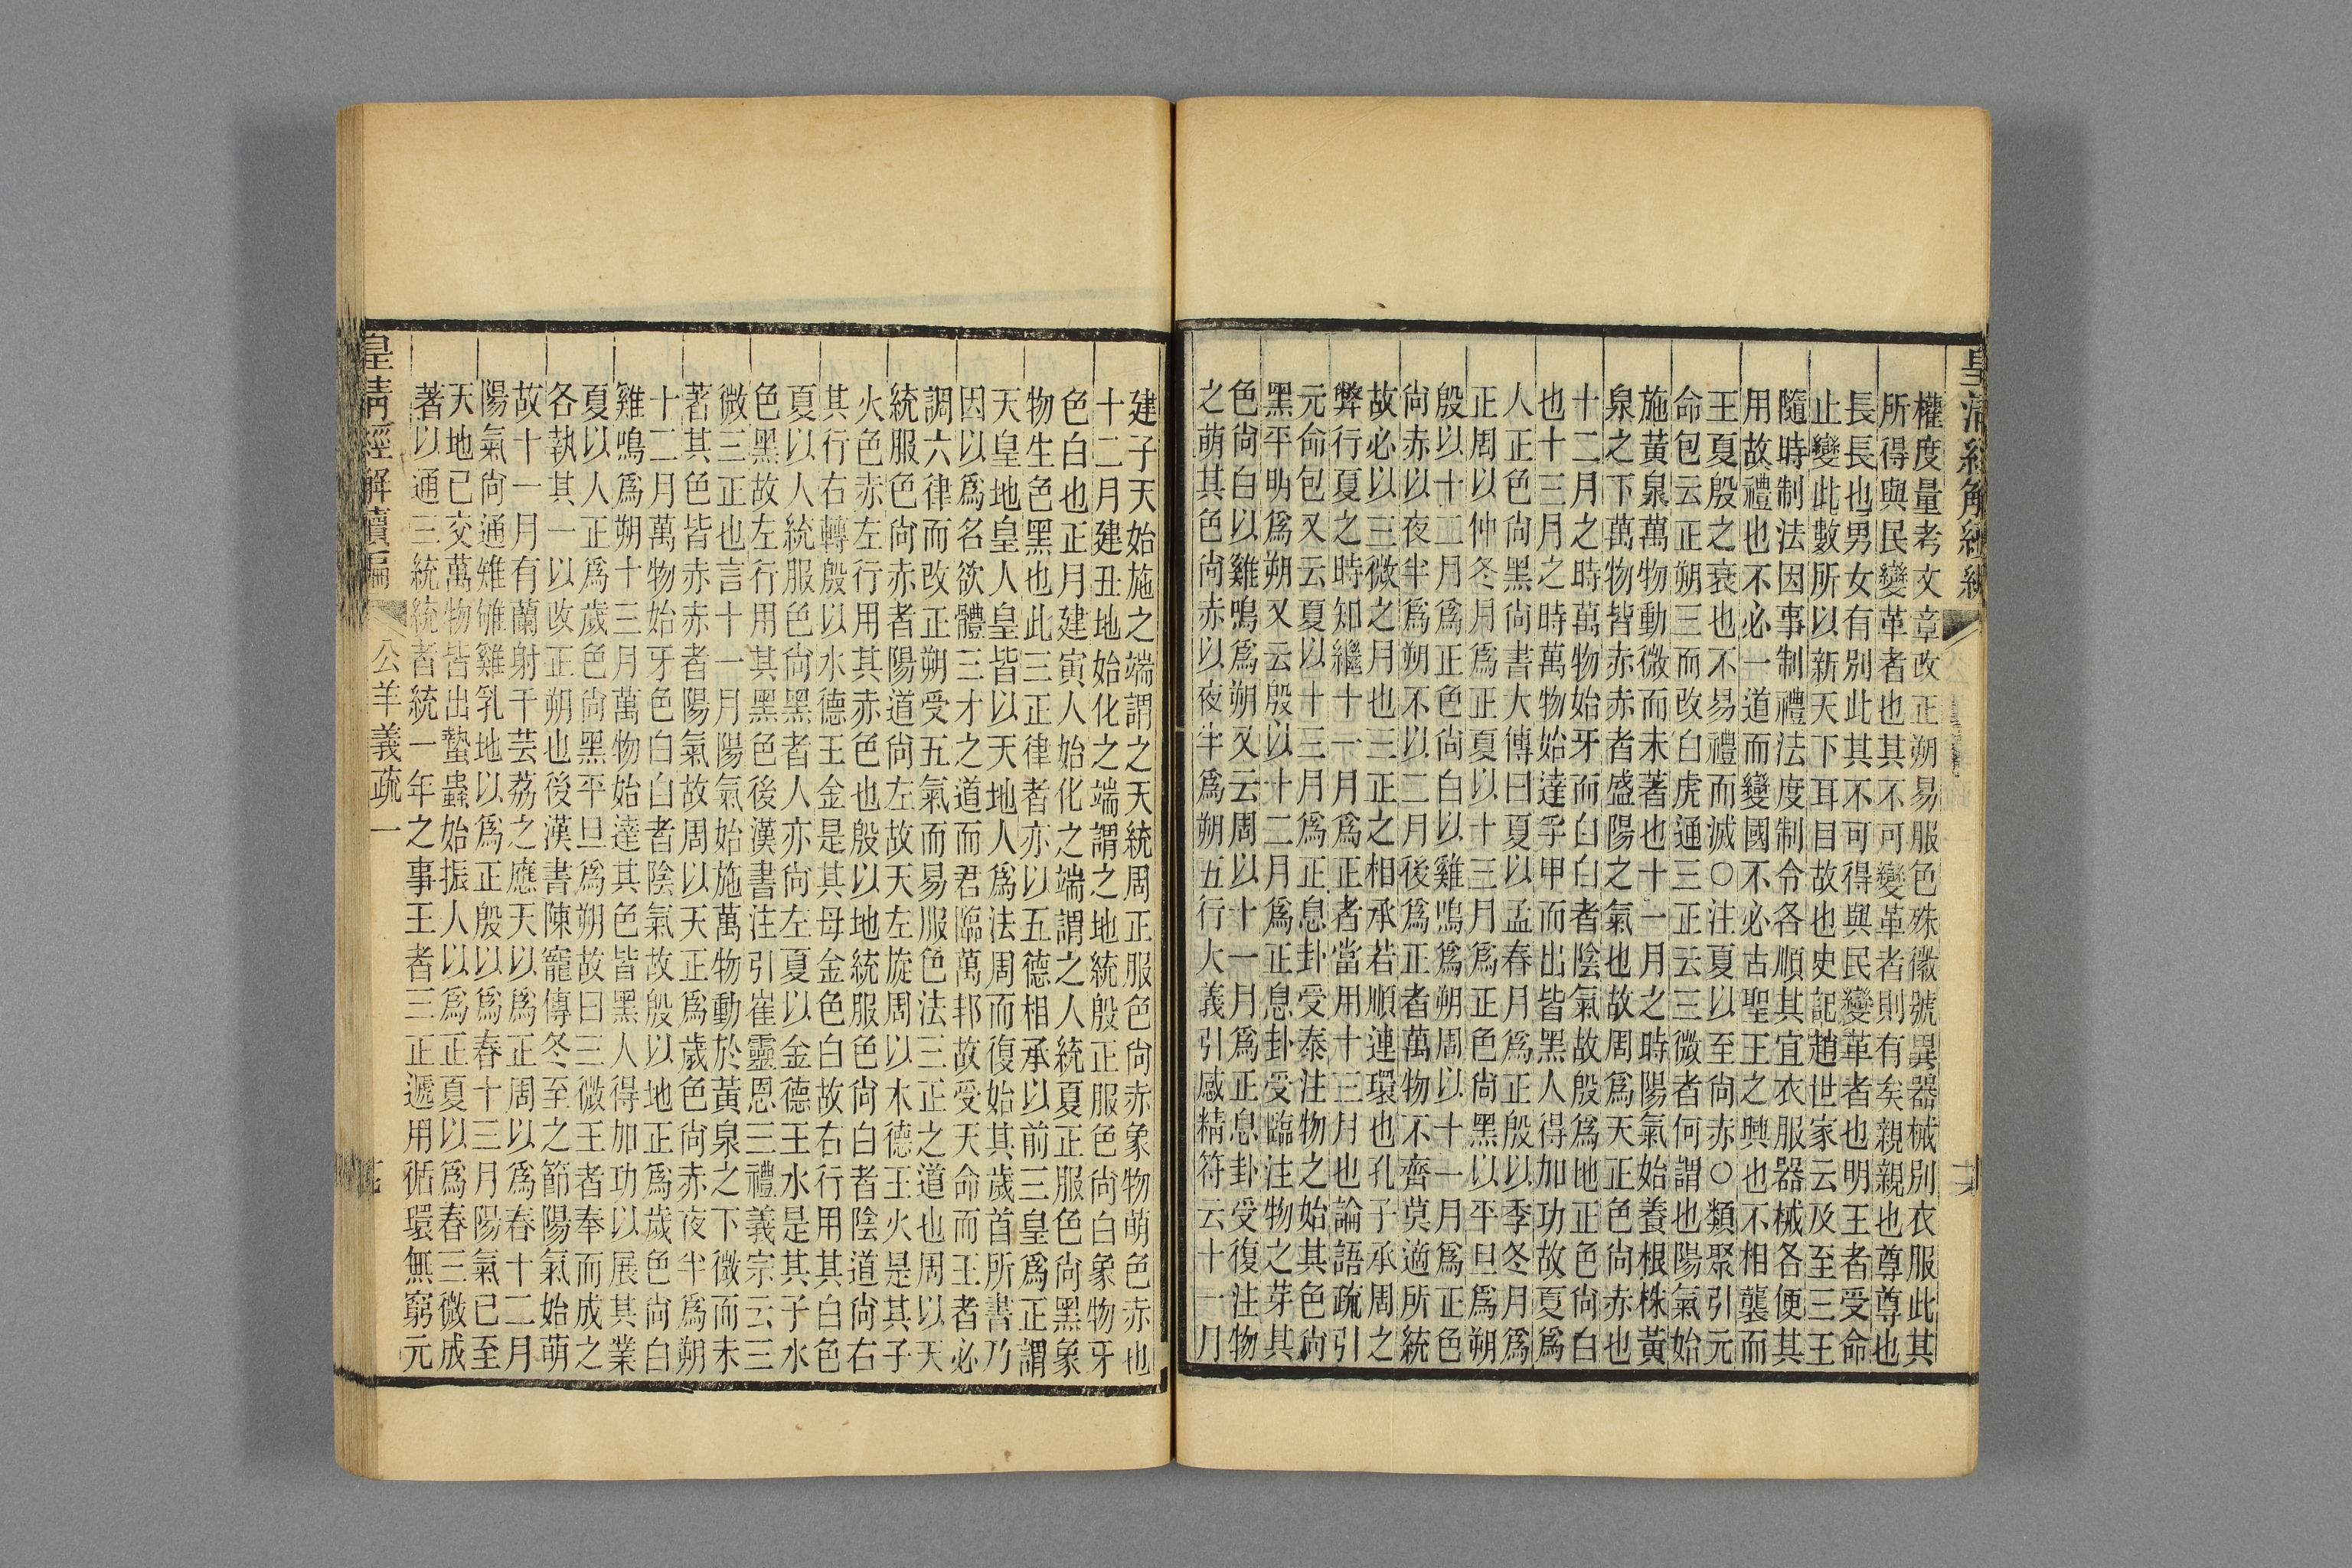 皇清經解續編
權度量考文章改正朔易服色殊徽號異器械別衣服此其
所得與民變革者也其不可變革者則有矣親親也尊尊也
長長也男女有別此其不可得與民變革者也明王者受命
止變此數所以新天下耳目故也史記趙世家云及至三王
隨時制法因事制禮法度制令各順其宜衣服器械各便其
用故禮也不必一道而變國不必古聖王之興也不相襲而
王夏殷之衰也不易禮而滅○注夏以至尙赤○類聚引元
命包云正朔三而改白虎通三正云三微者何謂也陽氣始
施黃泉萬物動微而未著也十一月之時陽氣始養根株黃
泉之下萬物皆赤赤者盛陽之氣也故周爲天正色尙赤也
十二月之時萬物始牙而白白者陰氣故殷爲地正色尙白
也十三月之時萬物始達孚甲而出皆黑人得加功故夏爲
人正色尙黑尙書大傳曰夏以孟春月爲正殷以季冬月爲
正周以仲冬月爲正夏以十三月爲正色尙黑以平旦爲朔
殷以十二月爲正色尙白以雞鳴爲朔周以十一月爲正色
尙赤以夜半爲朔不以二月後爲正者萬物不齊莫適所統
故必以三微之月也三正之相承若順連環也孔子承周之
弊行夏之時知繼十一月爲正者當用十三月也論語疏引
元命包又云夏以十三月爲正息卦受泰注物之始其色尙
黑平明爲朔又云殷以十二月爲正息卦受臨注物之芽其
色尙白以雞鳴爲朔又云周以十一月爲正息卦受復注物
之萌其色尙赤以夜半爲朔五行大義引感精符云十一月
建子天始施之端謂之天統周正服色尙赤象物萌色赤也
十二月建丑地始化之端謂之地統殷正服色尙白象物牙
色白也正月建寅人始化之端謂之人統夏正服色尙黑象
物生色黑也此三正律者亦以五德相承以前三皇爲正謂
天皇地皇人皇皆以天地人爲法周而復始其歲首所書乃
因以爲名欲體三才之道而君臨萬邦故受天命而王者必
調六律而改正朔受五氣而易服色法三正之道也周以天
統服色尙赤者陽道尙左故天左旋周以木德王火是其子
火色赤左行用其赤色也殷以地統服色尙白者陰道尙右
其行右轉殷以水德王金是其母金色白故右行用其白色
夏以人統服色尙黑者人亦尙左夏以金德王水是其子水
色黑故左行用其黑色後漢書注引崔靈恩三禮義宗云三
微三正也言十一月陽氣始施萬物動於黃泉之下微而未
著其色皆赤赤者陽氣故周以天正爲歲色尙赤夜半爲朔
十二月萬物始牙色白白者陰氣故殷以地正爲歲色尙白
雞鳴爲朔十三月萬物始達其色皆黑人得加功以展其業
夏以人正爲歲色尙黑平旦爲朔故曰三微王者奉而成之
各執其一以改正朔也後漢書陳寵傳冬至之節陽氣始萌
故十一月有蘭射干芸荔之應天以爲正周以爲春十二月
陽氣尙通雉雊雞乳地以爲正殷以爲春十三月陽氣已至
天地已交萬物皆出蟄蟲始振人以爲正夏以爲春三微成
著以通三統統者統一年之事王者三正遞用循環無窮元
皇清經解續編
公羊義疏一